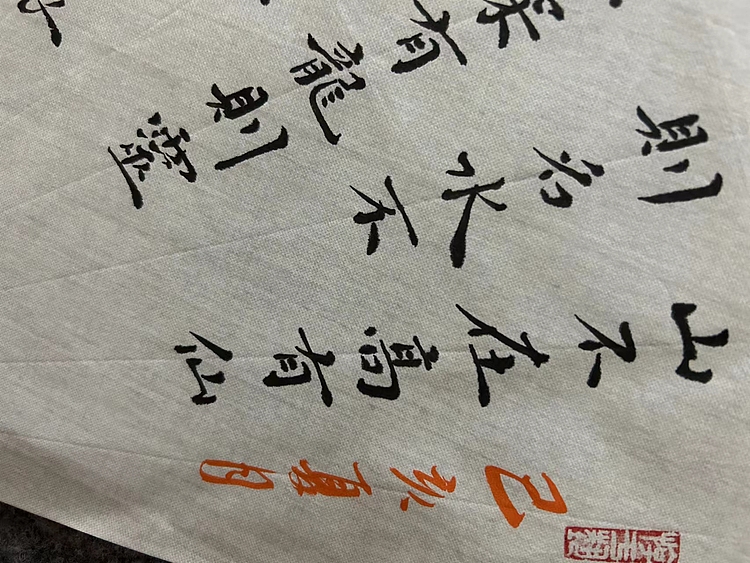 己亥夏月
山不在高有仙
則名水不
深有龍則靈